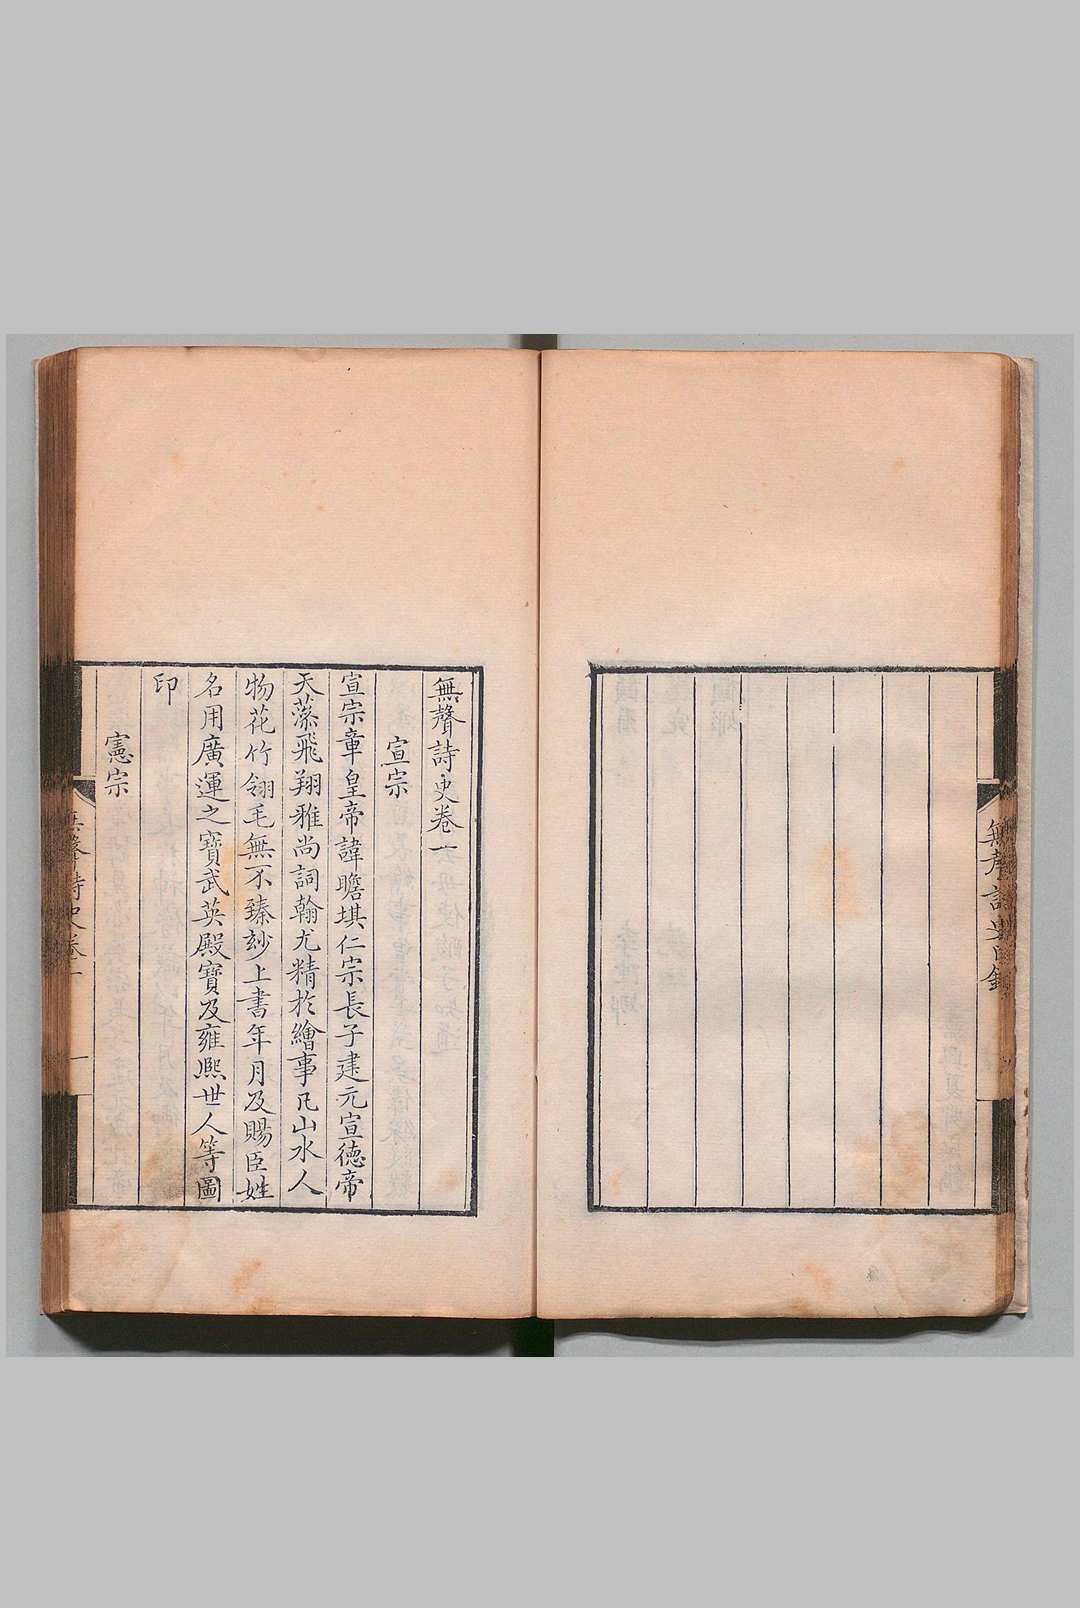 無聲詩史目錄
無聲詩史卷一
宣宗
宣宗章皇帝諱瞻基仁宗長子建元宣德帝
天藻飛翔雅尚詞翰尤精於繪事凡山水人
物花竹翎毛無不臻玅上書年月及賜臣姓
名用廣運之寶武英殿寶及雍熙世人等圖
印
憲宗
無聲詩史卷一
一